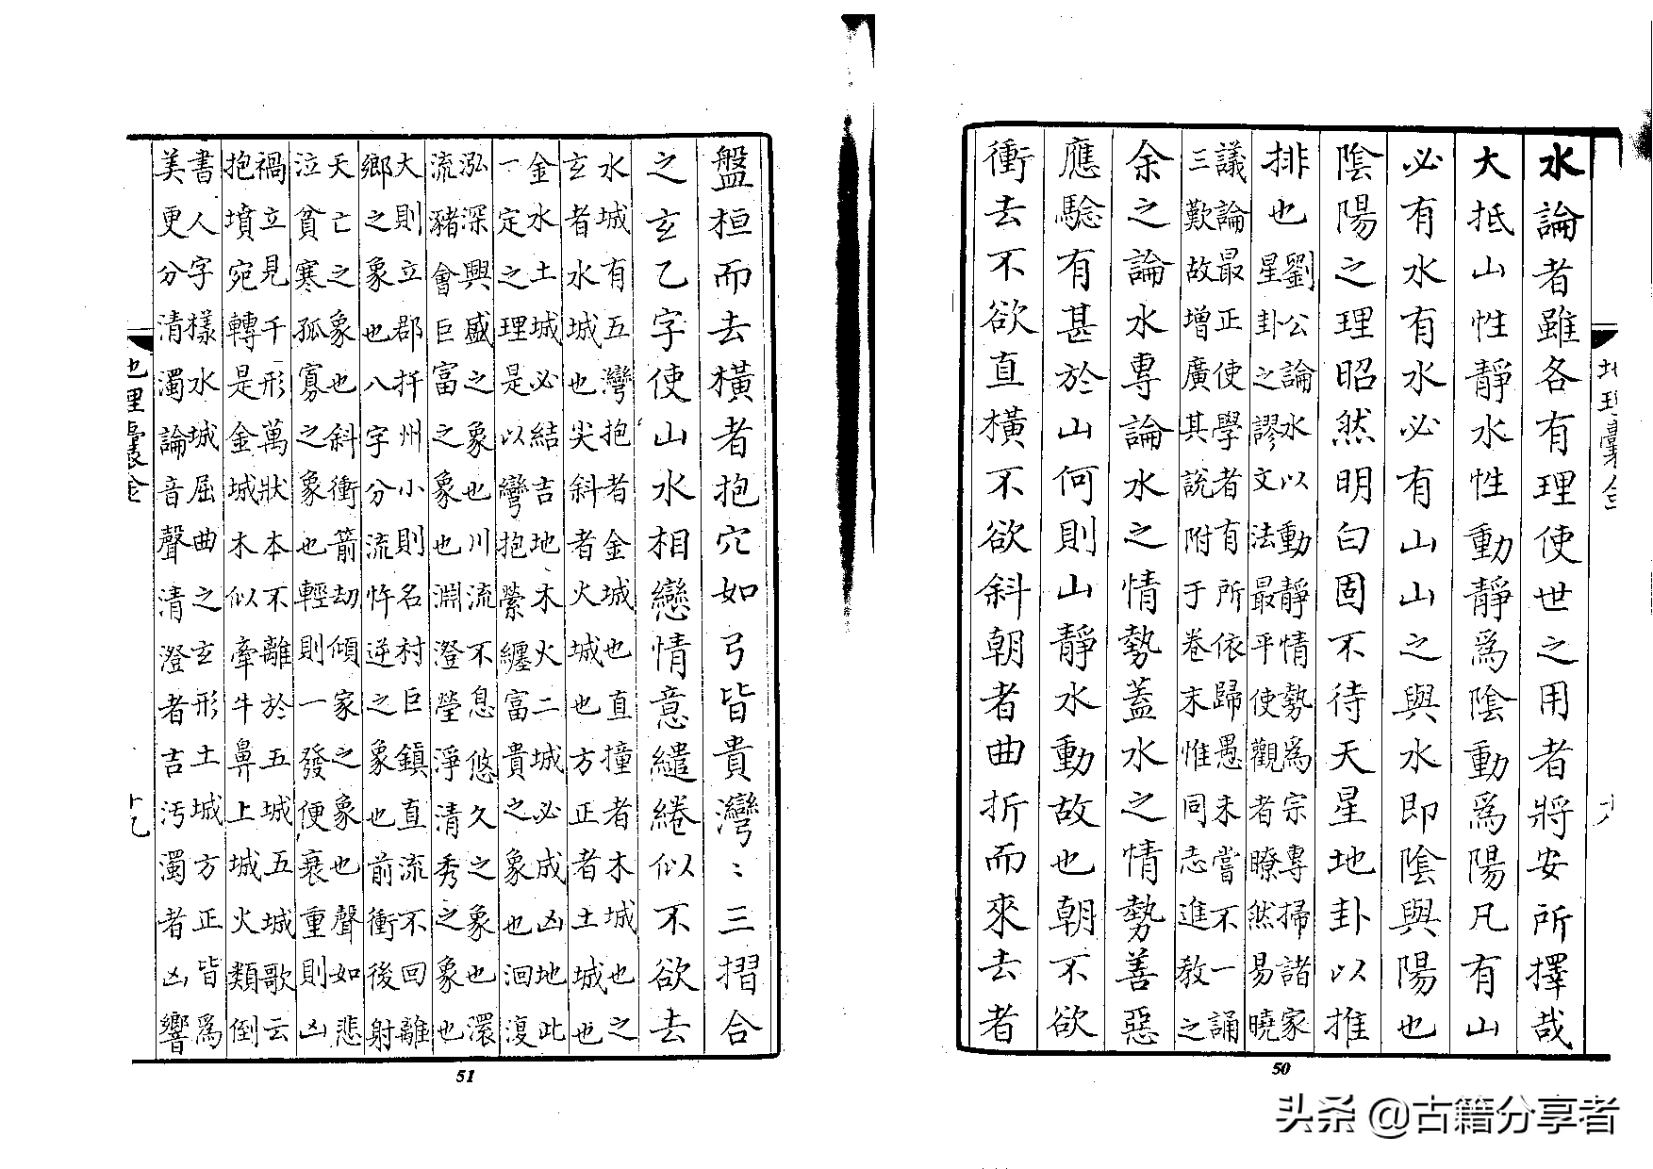 水論者雖各有理使世之用者將安所擇哉
大抵山性靜水性動靜爲陰動爲陽凡有山
必有水有水必有山山之與水即陰與陽也
陰陽之理昭然明白固不待天星地卦以推
排也
劉公論水以動靜情勢爲宗專掃諸家
星卦之謬文法最平使觀者瞭然易曉
議論最正使學者有所依歸愚未嘗不一誦
三歎故增廣其說附于卷末惟同志進教之
余之論水專論水之情勢蓋水之情勢善惡
應驗有甚於山何則山靜水動故也朝不欲
衝去不欲直橫不欲斜朝者曲折而來去者
地理囊金
50
盤桓而去橫者抱穴如弓皆貴灣〻三摺合
之玄乙字使山水相戀情意繾綣似不欲去
水城有五灣抱者金城也直撞者木城也之
玄者水城也尖斜者火城也方正者土城也
金水土城必結吉地木火二城必成凶地此
一定之理是以彎抱縈纏富貴之象也洄澓
泓深興盛之象也川流不息悠久之象也濃
流豬會巨富之象也淵澄瑩淨清秀之象也
大則立郡扦州小則名村巨鎮直流不回離
鄉之象也八字分流忤逆之象也前衝後射
天亡之象也斜衝箭劫傾家之象也聲如悲
泣貧寒孤寡之象也輕則一發便衰重則凶
禍立見千形萬狀本不離於五城五城歌云
抱墳宛轉是金城木似牽牛鼻上城火類倒
書人字樣水城屈曲之玄形土城方正皆爲
美更分清濁論音聲清澄者吉汚濁者凶響
地理囊金
十九
51
头条 @古籍分享者